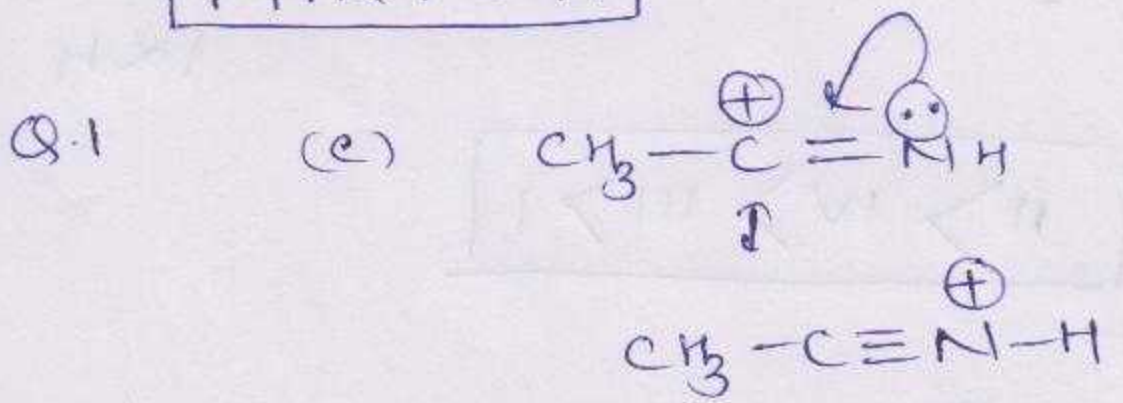 Q.1 (C) CH3 — C⊕ = N̈H
↕
CH3 - C ≡ N⊕ - H